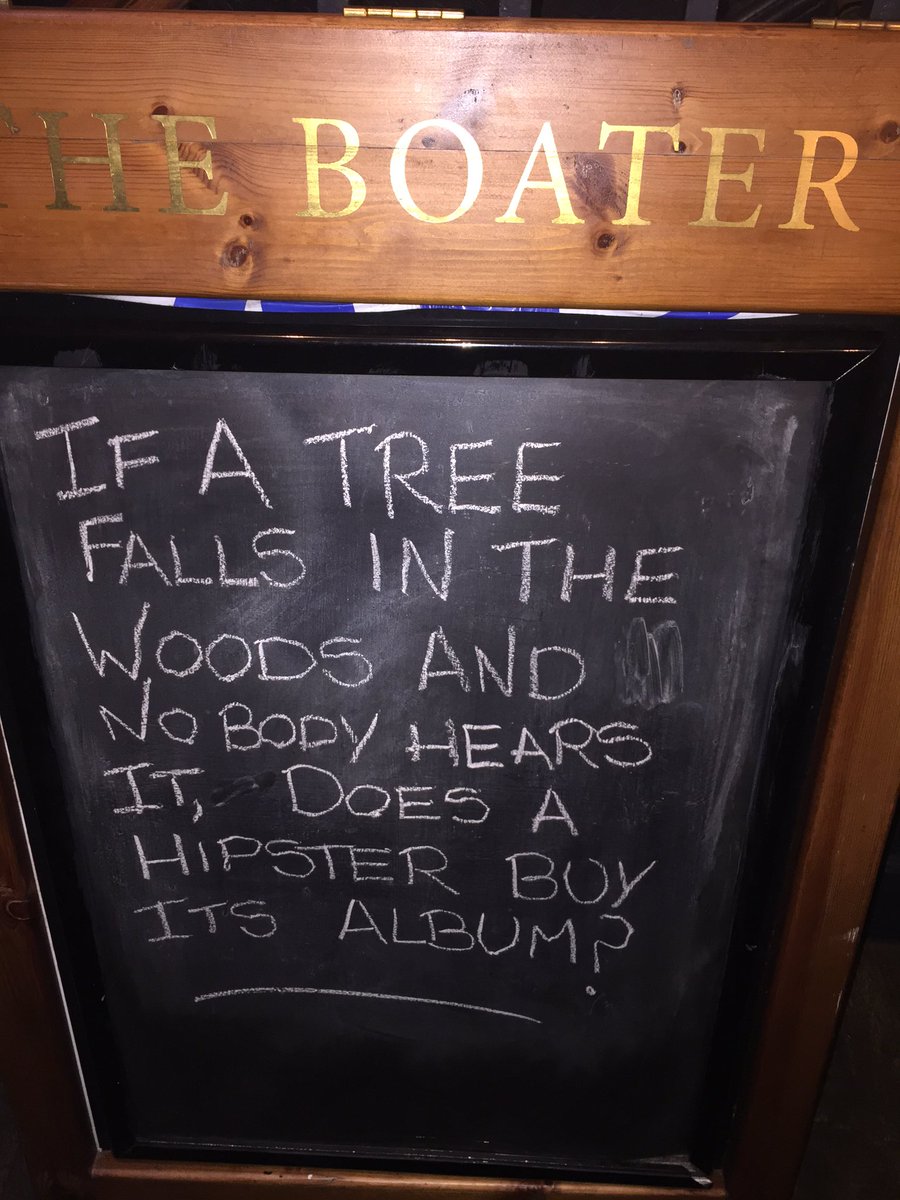 THE BOATER
IF A TREE
FALLS IN THE
WOODS AND
NOBODY HEARS
IT, DOES A
HIPSTER BUY
ITS ALBUM?